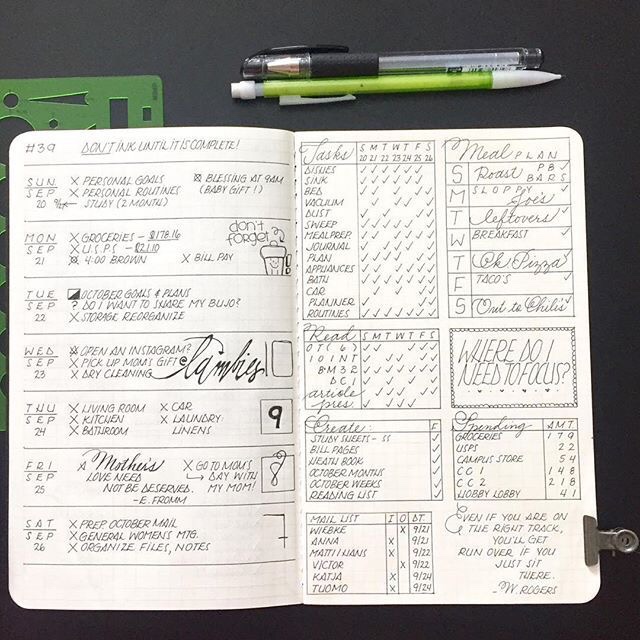 #39 DON'T INK UNTIL IT IS COMPLETE!
SUN X PERSONAL GOALS X BLESSING AT 9AM
SEP X PERSONAL ROUTINES (BABY GIFT!)
20 STUDY (2 MONTH)
MON X GROCERIES - $178.16 don't
SEP X U.S.P.S - $21.10 forget
21 4:00 BROWN X BILL PAY
TUE OCTOBER GOALS & PLANS
SEP ? DO I WANT TO SHARE MY BUJO?
22 X STORAGE REORGANIZE
WED OPEN AN INSTAGRAM?
SEP X PICK UP MOM'S GIFT
23 X DRY CLEANING Lambies
THU X LIVING ROOM X CAR 9
SEP X KITCHEN X LAUNDRY:
24 X BATHROOM LINENS
FRI A Mother's X GO TO MOM'S 8
SEP LOVE NEED DAY WITH
25 NOT BE DESERVED. MY MOM!
-E. FROMM
SAT X PREP OCTOBER MAIL 7
SEP X GENERAL WOMEN'S MTG.
26 X ORGANIZE FILES, NOTES
Tasks S M T W T F S
20 21 22 23 24 25 26
DISHES
SINK
BED
VACUUM
DUST
SWEEP
MEAL PREP
JOURNAL
PLAN
APPLIANCES
BATH
CAR
PLANNER
ROUTINES
Meal PLAN
S Roast PB BARS
M SLOPPY Joe's
T leftovers
W BREAKFAST
T Ck Pizza
F TACO'S
S Out to Chilis
Read S M T W T F S
OT S 6 3
10 I NT
BM 3 2
DC 1
article
pres.
WHERE DO I
NEED TO FOCUS?
Create: F
STUDY SHEETS - SS
BILL PAGES
HEATH BOOK
OCTOBER MONTHS
OCTOBER WEEKS
READING LIST
Spending AMT.
GROCERIES 179
USPS 22
CAMPUS STORE 54
CC1 148
CC2 218
HOBBY LOBBY 41
MAIL LIST I O DT.
WIEBKE X 9/21
ANNA X 9/21
MATTI HANS X 9/22
VICTOR X 9/22
KATJA X 9/24
TUOMO X 9/24
EVEN IF YOU ARE ON
THE RIGHT TRACK,
YOU'LL GET
RUN OVER IF YOU
JUST SIT
THERE.
-W. ROGERS